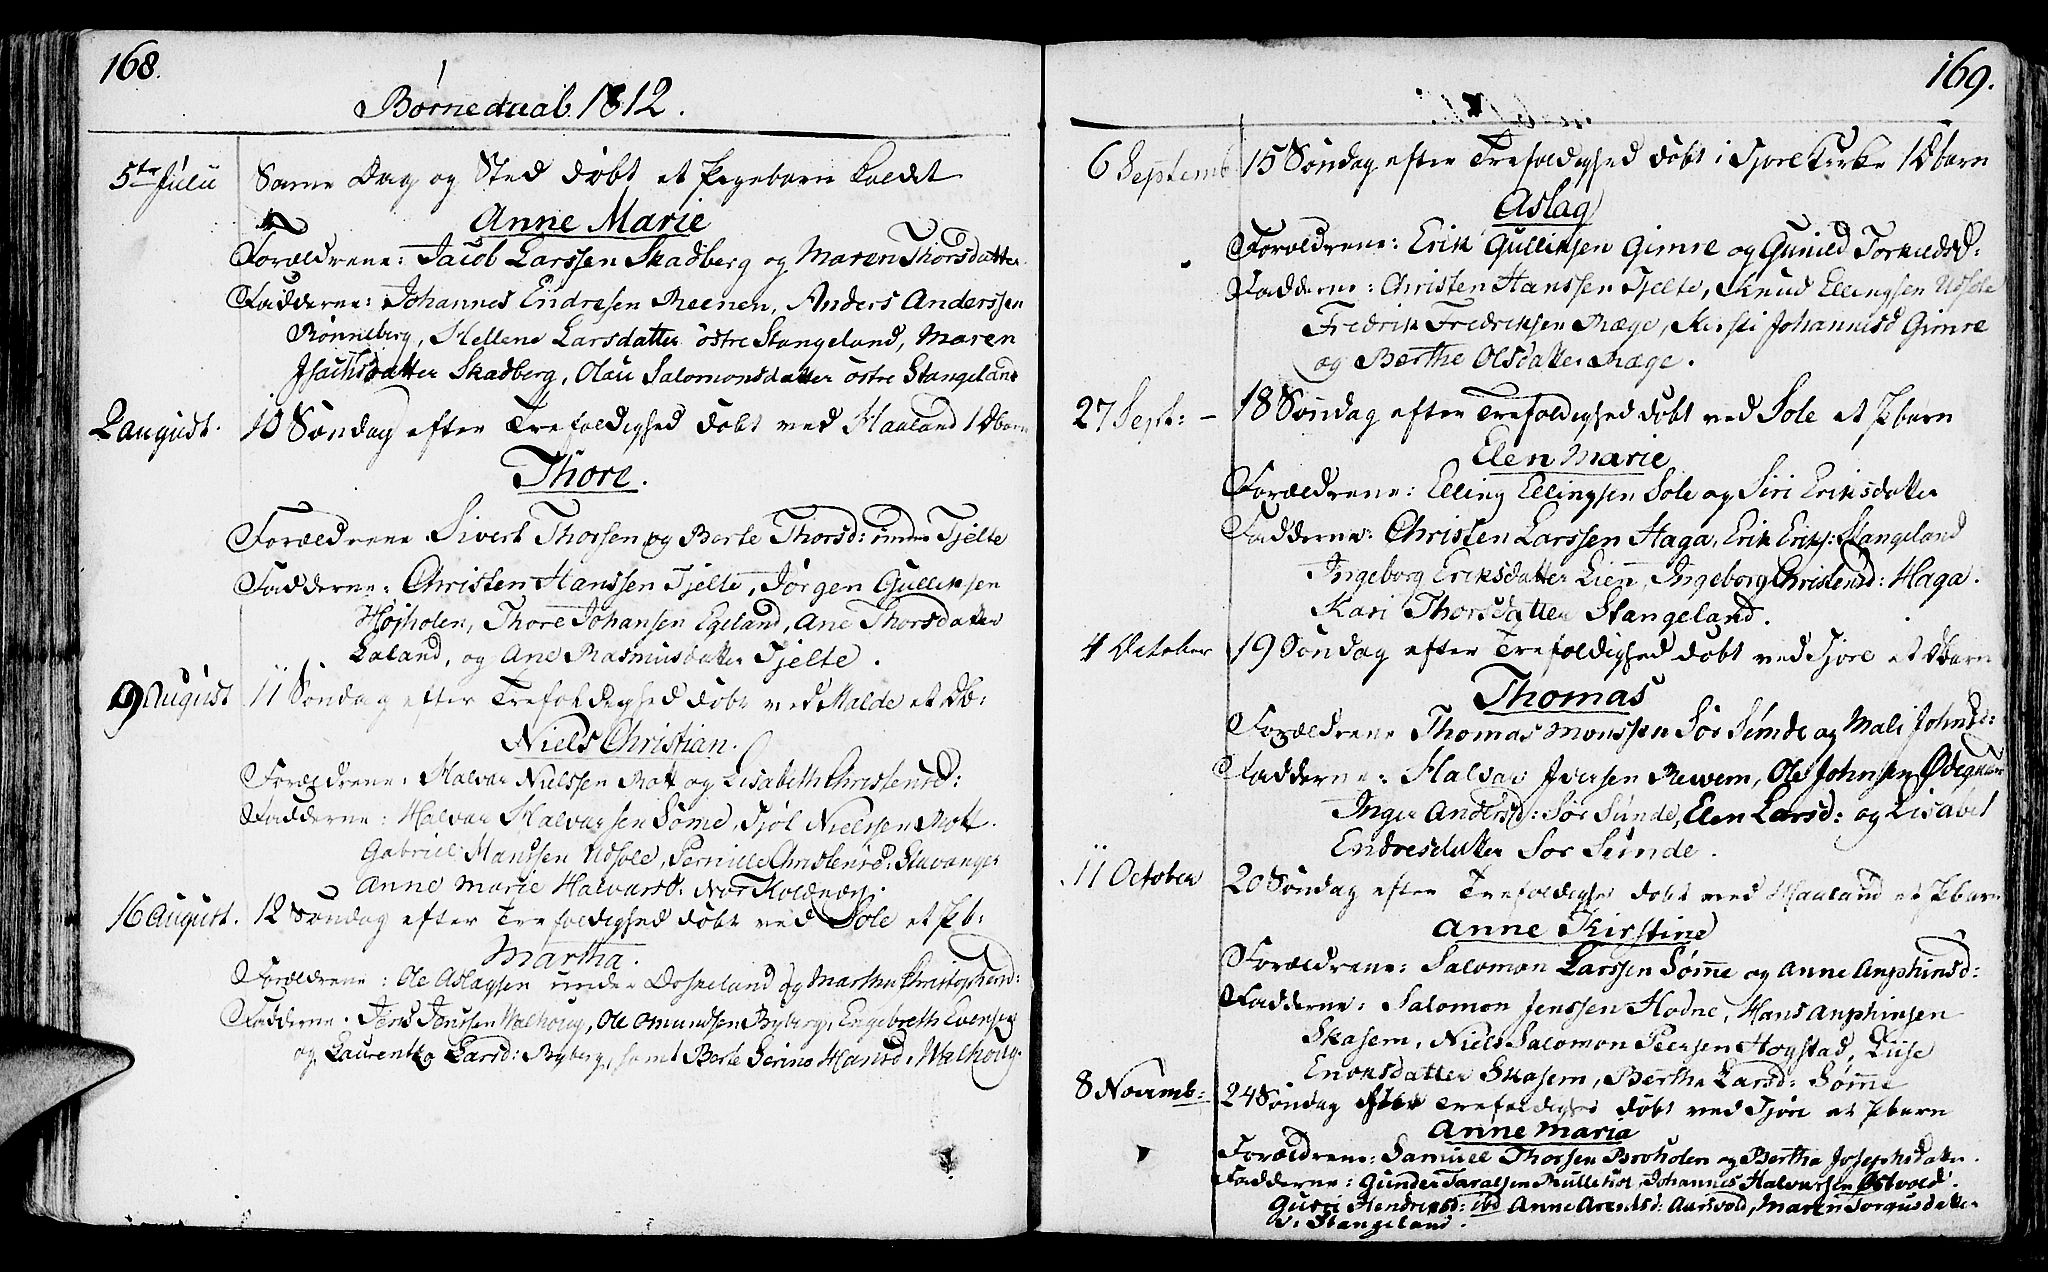 168.
Børnedaab. 1812.
5te Julii Same Dag og Sted døbt et Pigebarn kaldet
Anne Marie
Forældrene: Jacob Larssen Skadberg og Maren Thorsdatter
Fadderne: Johannes Endresen Reenen, Anders Anderssen
Rönneberg, Hellene Larsdatter östre Stangeland, Maren
Isachsdatter Skadberg, Olau Salomonsdatter östre Stangeland
2 August. 10 Søndag efter Trefoldighed døbt ved Haaland 1 Dbarn
Thore.
Forældrene Sivert Thorssen og Berte Thorsd: Tjelte
Fadderne: Christen Hanssen Tjelte, Jörgen Gulliksen
Højholen, Thore Johansen Egeland, Ane Thorsdatter
Laland, og Ane Rasmusdatter Tjelte.
9 August 11 Søndag efter Trefoldighed døbt ved Malde et Db:
Niels Christian.
Forældrene: Halvar Nielssen Rott og Lisabeth Christensd:
Fadderne: Halvar Halvarsen Söme, Tjöl Nielssen Rott.
Gabriel Manssen Udsole, Pernille Christensd: Stavanger
Anne Marie Halvarsd:
16 August. 12 Søndag efter Trefoldighed døbt ved Sole et Pb:
Martha.
Forældrene: Ole Aslagsen under Doskeland og Martha Christophersd:
Fadderne. Jens Jenssen Walhoug, Ole Omundsen Byberg, Engebreth Evensen
og Larsd: Byberg, samt Berte Serina Hansd: Walhoug.
169.
6 Septemb 15 Søndag efter Trefoldighed døbt i Tjore Kirke 1 Dbarn
Aslag
Forældrene: Erik Gulliksen Gimre og Gunild Torkildsd:
Fadderne: Christen Hanssen Tjelte, Knud Ellingsen Udsole
Fredrik Fredriksen Ræge, Kirsti Johannisd Gimre
og Berthe Olsdatter Ræge.
27 Sept: – 18 Søndag efter Trefoldighed døbt ved Sole et Pbarn
Elen Marie
Forældrene: Elling Ellingsen Sole og Siri Eriksdatter
Fadderne: Christen Larssen Haga, Erik Eriks: Stangeland
Ingeborg Eriksdatter Lien, Ingeborg Christensd: Haga.
Kari Thorsdatter Stangeland.
4 October 19 Søndag efter Trefoldighed døbt ved Tjore et Dbarn
Thomas
Forældrene Thomas Monssen Sör Sunde og Mali Johnsd:
Fadderne: Halvar Iversen Rewem, Ole Johnsen
Inger Andersd: Sör Sunde, Elen Larsd: og Lisabet
Endresdatter Sör Sunde.
11 October 20 Søndag efter Trefoldighed døbt ved Haaland et Pbarn
Anne Kirstine
Forældrene: Salomon Larssen Sömme og Anne Anphinsd:
Fadderne: Salomon Jenssen Hodne, Hans Anphinsen
Skasem, Niels Salomon Peersen Hogstad, Liise
Enoksdatter Skasem, Bertha Larsd: Sömme
8 Novemb: 24 Søndag efter Trefoldighed døbt ved Tjore et Pbarn
Anne Maria
Forældrene: Samuel Thorsen Broholen og Bertha Josephsdatter.
Fadderne: Gunder Taralsen Johannes Halvarsen Østvold.
Guri Hendriksd: ibd Anne Arentsd: Aarsvold, Maren Torgusdatter
S: Stangeland.